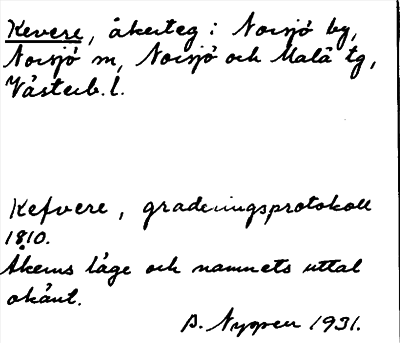 Kevere, åkerteg i Norsjö by,
Norsjö sn, Norsjö och Malå tg,
Västerb. l.
Kefvere, graderingsprotokoll
1810.
Åkerns läge och namnets uttal
okänt.
B. Nygren 1931.